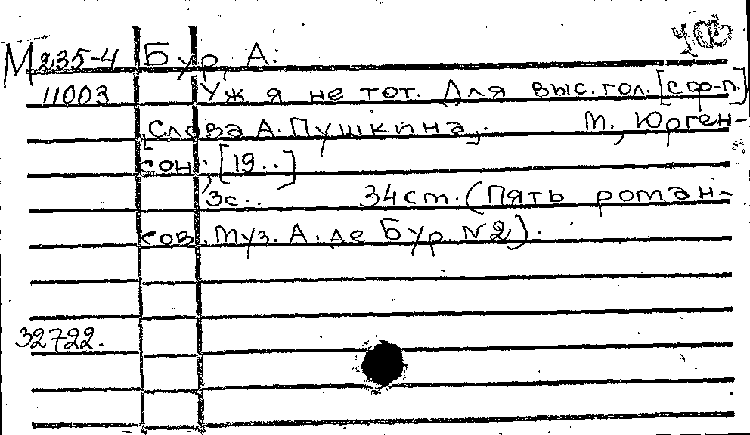 М 235-4 Бур, А.
11003 Уж я не тот. Для выс. гол. [с ф-п.]
[Слова А. Пушкина,. М., Юрген-
сон, [19..]
3с. 34 ст. (Пять роман-
сов. Муз. А. де Бур. №2).
32722.